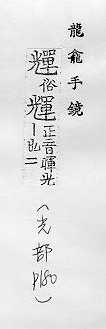 龍龕手鏡
俗輝正音暉光
丨也二
(光部
P180)